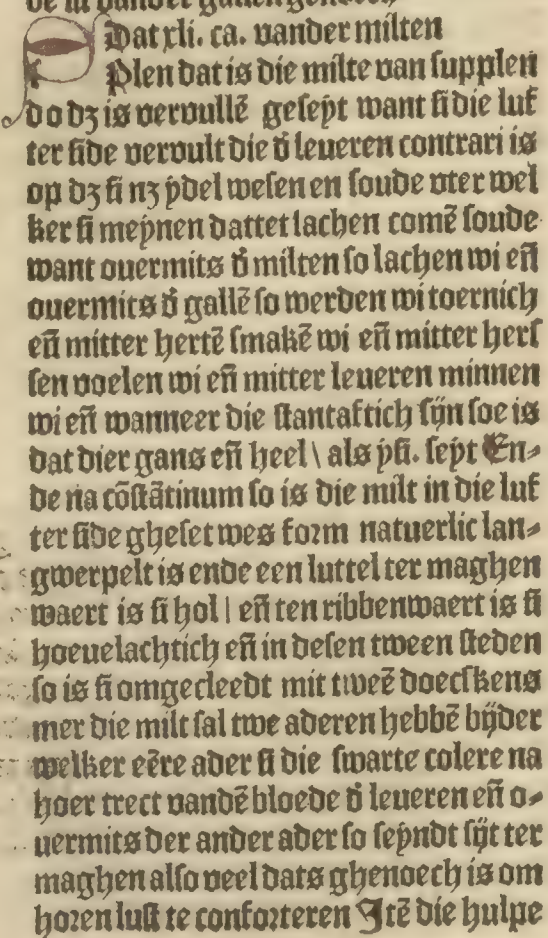 Dat xli. ca. vander milten
Plen dat is die milte van supplen
do dz is vervullē geseyt want si die luf
ter side vervult die đ leueren contrari is
op dz si nz ydel wesen en soude vter wel
ker si meynen dattet lachen comē soude
want ouermits đ milten so lachen wi eñ
ouermits đ gallē so werden wi toernich
eñ mitter hertē smakē wi eñ mitter herſ
sen voelen wi eñ mitter leueren minnen
wi eñ wanneer die stantaftich sijn soe is
dat dier gans eñ heel \ als ysi. seyt En⸗
de na cōstātinum so is die milt in die luf
ter side gheset wes form natuerlic lan⸗
gwerpelt is ende een luttel ter maghen
waert is si hol | eñ ten ribben waert is si
hoeuelachtich eñ in desen tween steden
so is si omgecleedt mit tweē doecſkens
mer die milt sal twe aderen hebbē bijder
welker eēre ader si die swarte colere na
hoer trect vandē bloede đ leueren eñ o⸗
uermits der ander ader so seyndt sijt ter
maghen also veel dats ghenoech is om
horen lust te conforteren Itē die hulpe